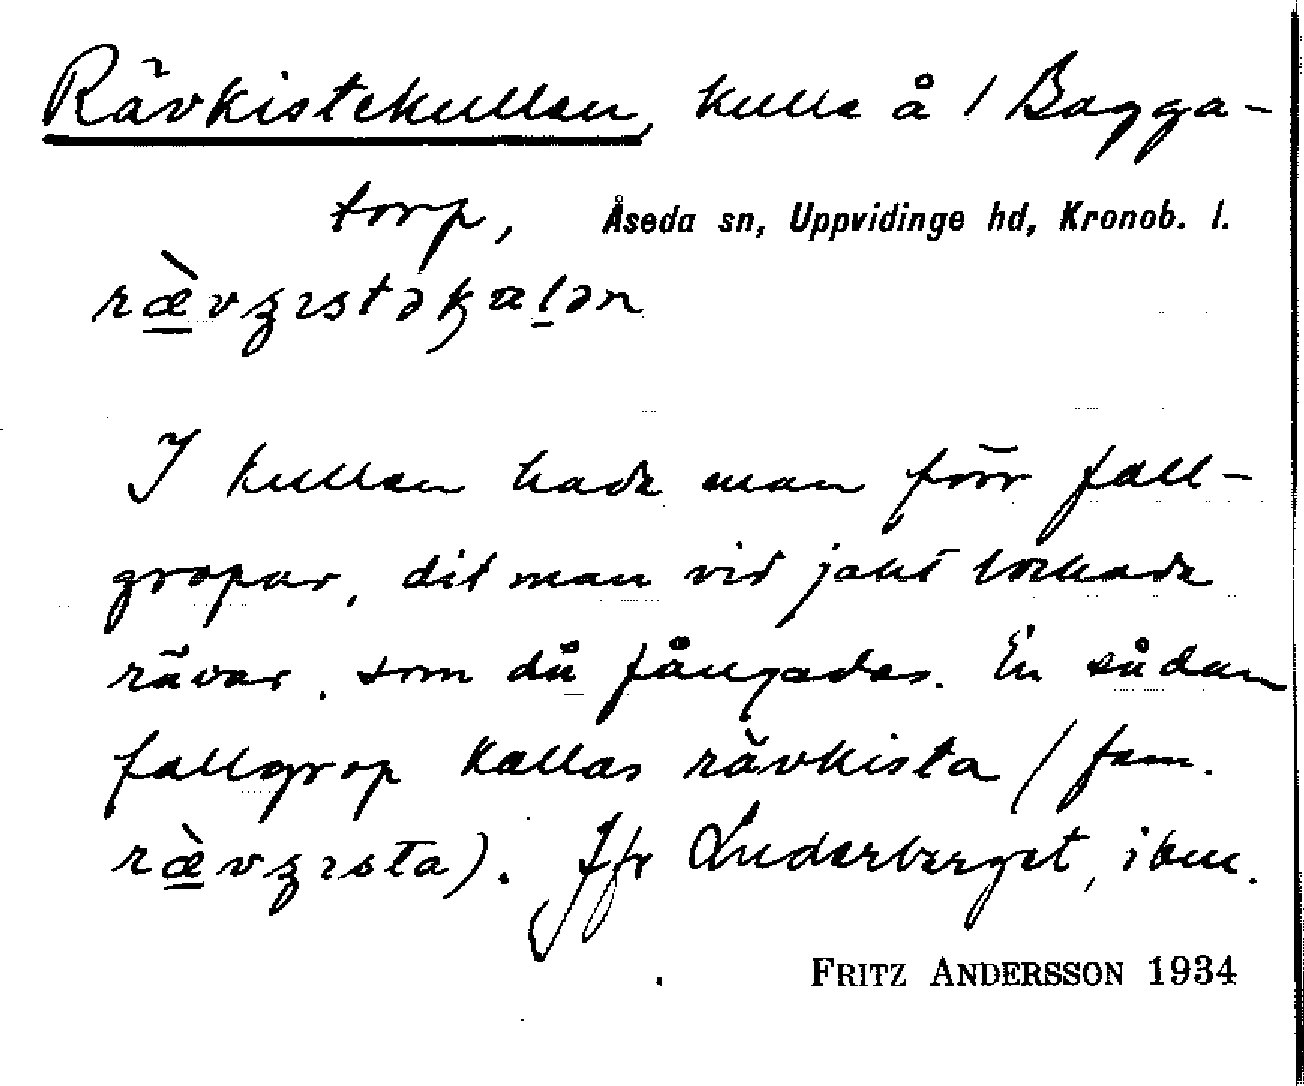 Rävkistekullen, kulle å 1 Bagga-
torp, Åseda sn, Uppvidinge hd, Kronob. l.
I kullen hade man förr fall-
gropar, dit man vid jakt lockade
rävar, som då fångades. En sådan
fallgrop kallas rävkista (fem.
Jfr Luderberget, ibm.
FRITZ ANDERSSON 1934